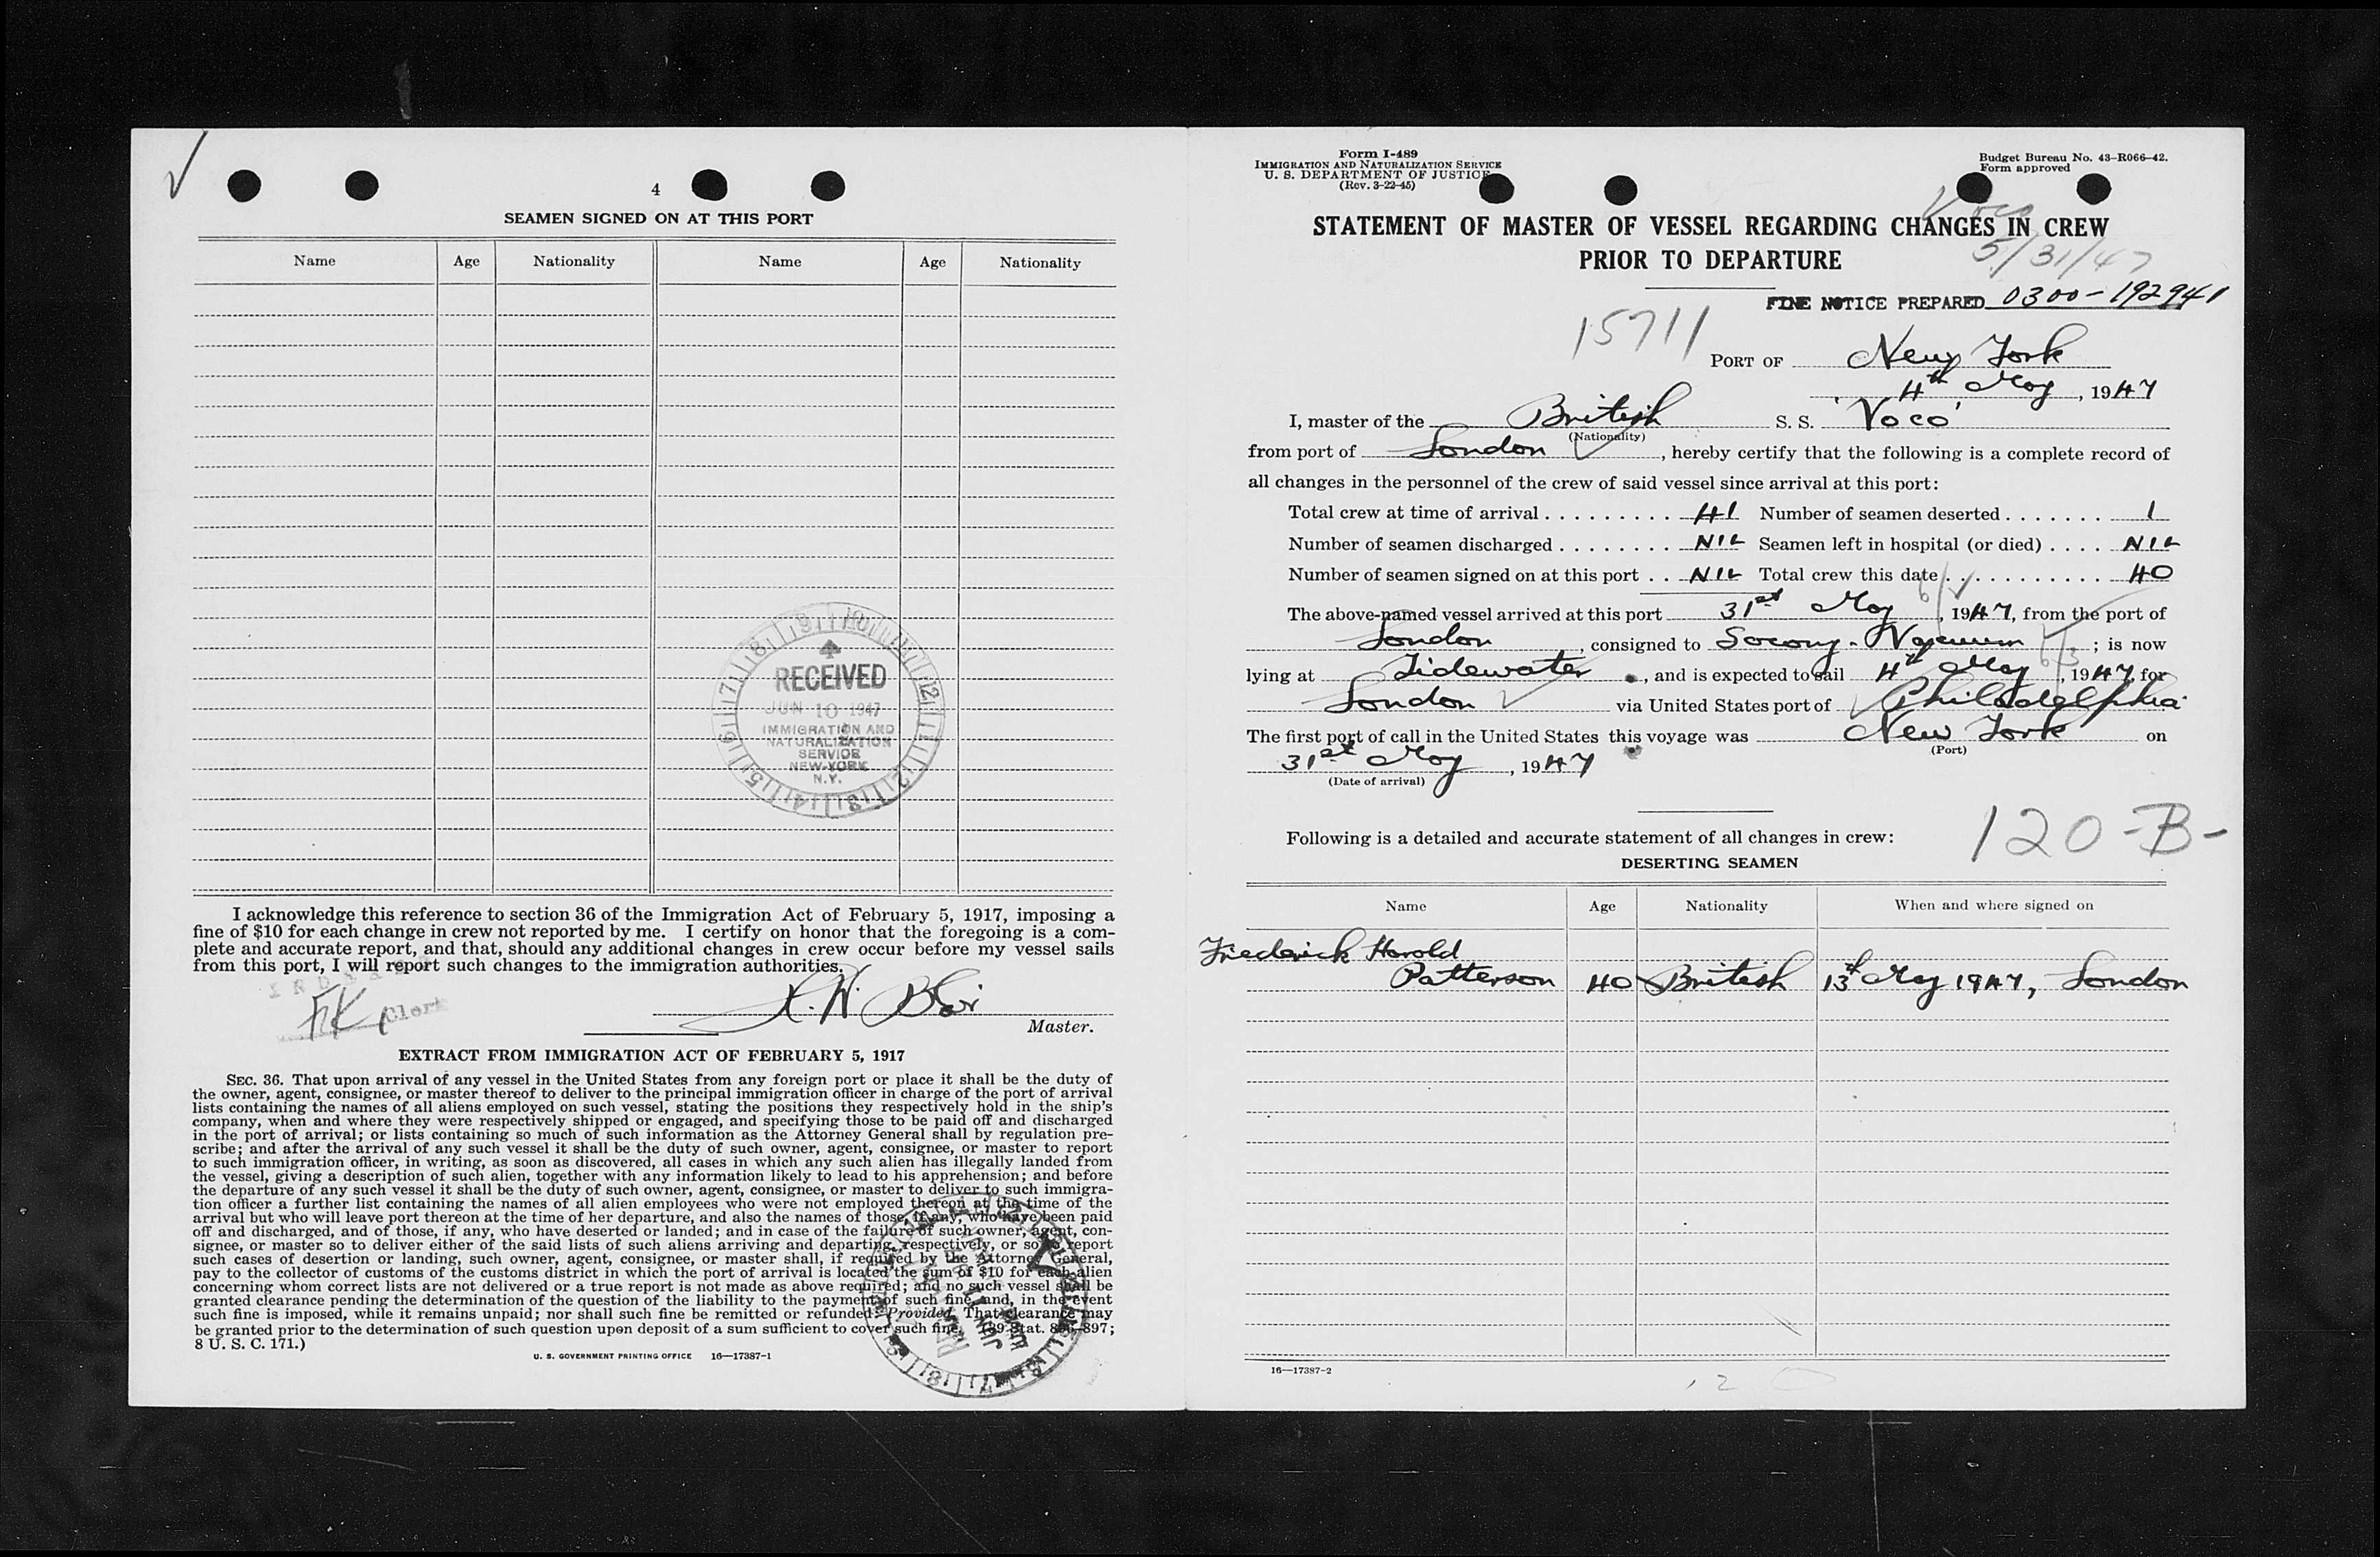 4
SEAMEN SIGNED ON AT THIS PORT
Name Age Nationality Name Age Nationality
RECEIVED
JUN 10 1947
IMMIGRATION AND
NATURALIZATION
SERVICE
NEW YORK
N.Y.
I acknowledge this reference to section 36 of the Immigration Act of February 5, 1917, imposing a
fine of $10 for each change in crew not reported by me. I certify on honor that the foregoing is a com-
plete and accurate report, and that, should any additional changes in crew occur before my vessel sails
from this port, I will report such changes to the immigration authorities.
Clerk
Master.
EXTRACT FROM IMMIGRATION ACT OF FEBRUARY 5, 1917
SEC. 36. That upon arrival of any vessel in the United States from any foreign port or place it shall be the duty of
the owner, agent, consignee, or master thereof to deliver to the principal immigration officer in charge of the port of arrival
lists containing the names of all aliens employed on such vessel, stating the positions they respectively hold in the ship's
company, when and where they were respectively shipped or engaged, and specifying those to be paid off and discharged
in the port of arrival; or lists containing so much of such information as the Attorney General shall by regulation pre-
scribe; and after the arrival of any such vessel it shall be the duty of such owner, agent, consignee, or master to report
to such immigration officer, in writing, as soon as discovered, all cases in which any such alien has illegally landed from
the vessel, giving a description of such alien, together with any information likely to lead to his apprehension; and before
the departure of any such vessel it shall be the duty of such owner, agent, consignee, or master to deliver to such immigra-
tion officer a further list containing the names of all alien employees who were not employed thereon at the time of the
arrival but who will leave port thereon at the time of her departure, and also the names of those, if any, who have been paid
off and discharged, and of those, if any, who have deserted or landed; and in case of the failure of such owner, agent, con-
signee, or master so to deliver either of the said lists of such aliens arriving and departing, respectively, or so to report
such cases of desertion or landing, such owner, agent, consignee, or master shall, if required by the Attorney General,
pay to the collector of customs of the customs district in which the port of arrival is located the sum of $10 for each alien
concerning whom correct lists are not delivered or a true report is not made as above required; and no such vessel shall be
granted clearance pending the determination of the question of the liability to the payment of such fine, and, in the event
such fine is imposed, while it remains unpaid; nor shall such fine be remitted or refunded: Provided, That clearance may
be granted prior to the determination of such question upon deposit of a sum sufficient to cover such fine. (39 Stat. 896-897;
8 U. S. C. 171.)
U. S. GOVERNMENT PRINTING OFFICE 16—17387-1
Form I-489
IMMIGRATION AND NATURALIZATION SERVICE
U. S. DEPARTMENT OF JUSTICE
(Rev. 3-22-45)
Budget Bureau No. 43-R066-42.
Form approved
Voco
STATEMENT OF MASTER OF VESSEL REGARDING CHANGES IN CREW
PRIOR TO DEPARTURE
5/31/47
FINE NOTICE PREPARED 0300-192941
15711
PORT OF New York
4th May, 1947
I, master of the British S. S. 'Voco'
(Nationality)
from port of London, hereby certify that the following is a complete record of
all changes in the personnel of the crew of said vessel since arrival at this port:
Total crew at time of arrival . . . . . . . . . . 41 Number of seamen deserted . . . . . . . 1
Number of seamen discharged . . . . . . . . NIL Seamen left in hospital (or died) . . . . NIL
Number of seamen signed on at this port . . NIL Total crew this date . . . . . . . . . . . 40
The above-named vessel arrived at this port 31st May, 1947, from the port of
London, consigned to Socony-Vacuum; is now
lying at Tidewater, and is expected to sail 4th May, 1947, for
London via United States port of Philadelphia
The first port of call in the United States this voyage was New York on
(Port)
31st May, 1947
(Date of arrival)
120-B-
Following is a detailed and accurate statement of all changes in crew:
DESERTING SEAMEN
Name Age Nationality When and where signed on
Frederick Harold
Patterson 40 British 13th May 1947, London
16—17387-2